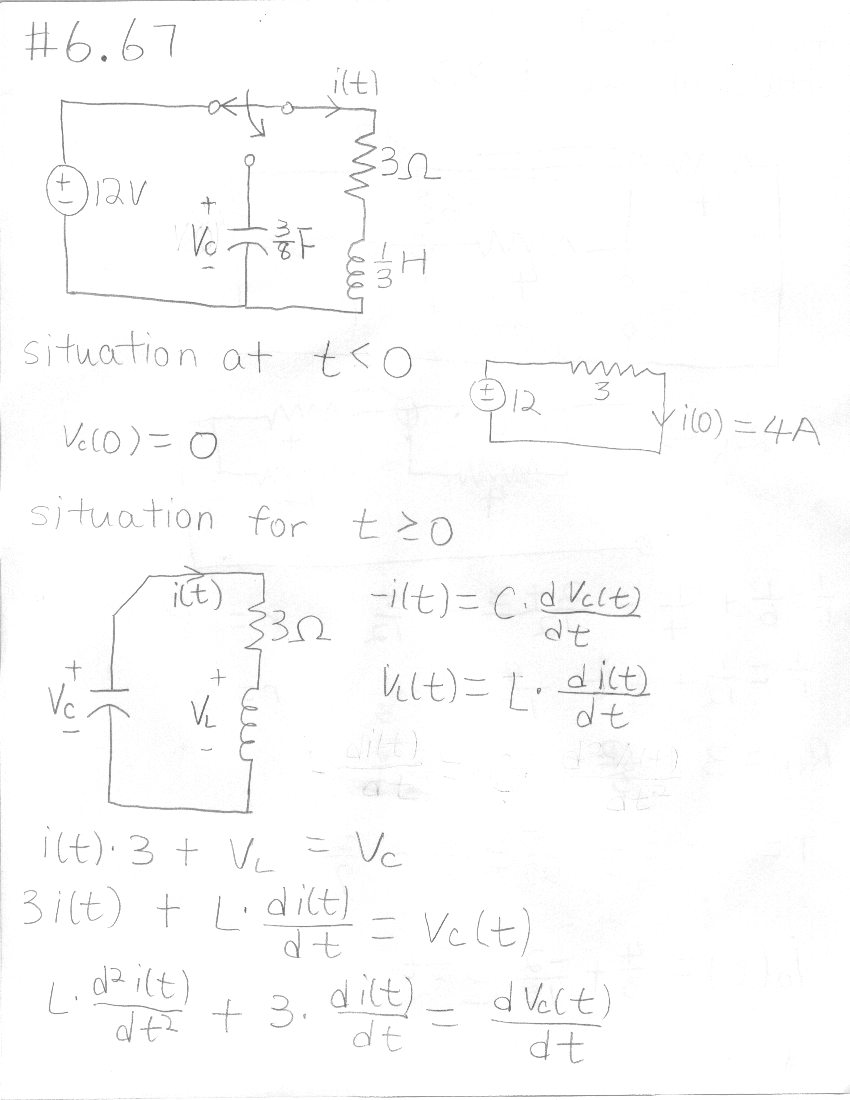 #6.67
i(t)
12V
3Ω
+
Vc
-
3/8 F
1/3 H
situation at t<0
Vc(0) = 0
12
3
i(0) = 4A
situation for t ≥ 0
i(t)
3Ω
+
Vc
-
+
VL
-
-i(t) = C · d Vc(t)/dt
VL(t) = L · d i(t)/dt
i(t) · 3 + VL = Vc
3 i(t) + L · d i(t)/dt = Vc(t)
L · d² i(t)/dt² + 3 · d i(t)/dt = d Vc(t)/dt